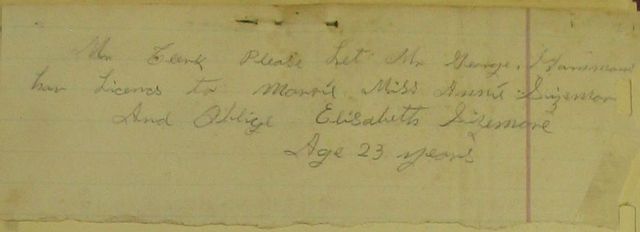 Mr Clerk Please Let Mr George
hav Licens to Marrie Miss Annie Sizemor
And Oblige Elisabeth Sizemore
Age 23 years